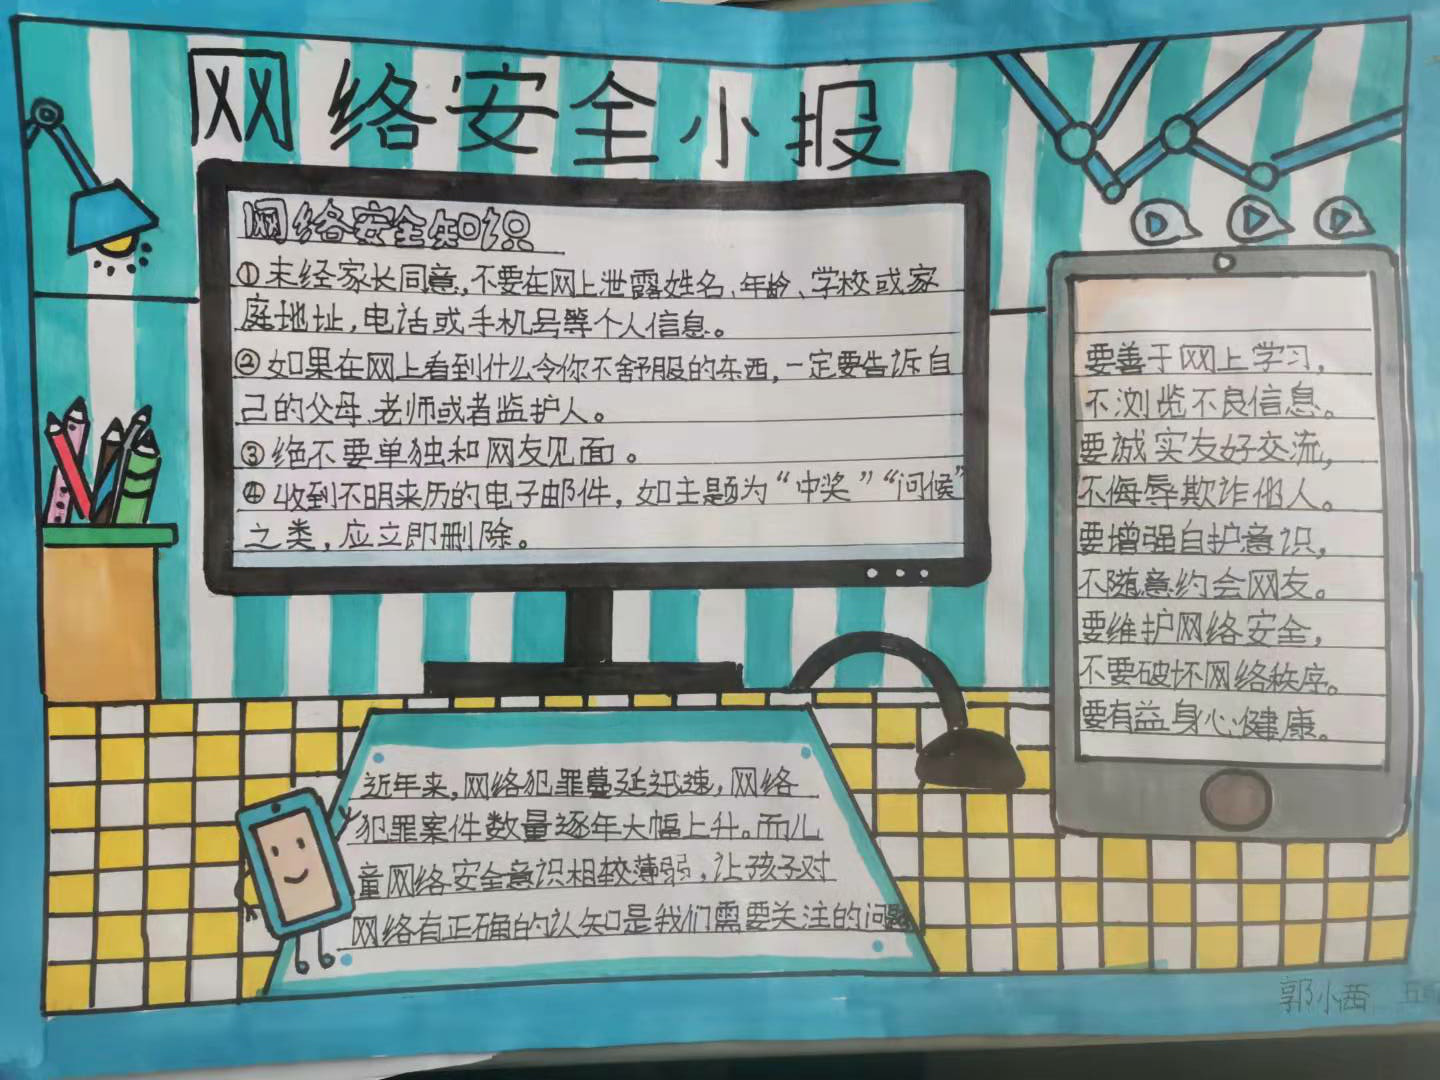 网络安全小报
网络安全知识
①未经家长同意,不要在网上泄露姓名、年龄、学校或家
庭地址,电话或手机号等个人信息。
②如果在网上看到什么令你不舒服的东西,一定要告诉自
己的父母、老师或者监护人。
③绝不要单独和网友见面。
④收到不明来历的电子邮件,如主题为“中奖”“问候”
之类,应立即删除。
要善于网上学习,
不浏览不良信息。
要诚实友好交流,
不侮辱欺诈他人。
要增强自护意识,
不随意约会网友。
要维护网络安全,
不要破坏网络秩序。
要有益身心健康。
近年来,网络犯罪蔓延迅速,网络
犯罪案件数量逐年大幅上升。而儿
童网络安全意识相较薄弱,让孩子对
网络有正确的认知是我们需要关注的问题
郭小西 五